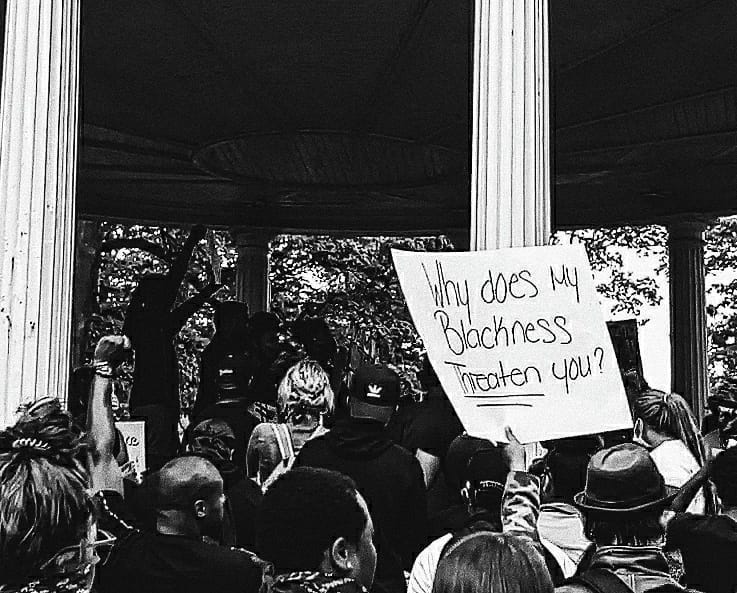 Why does My
Blackness
Threaten you?